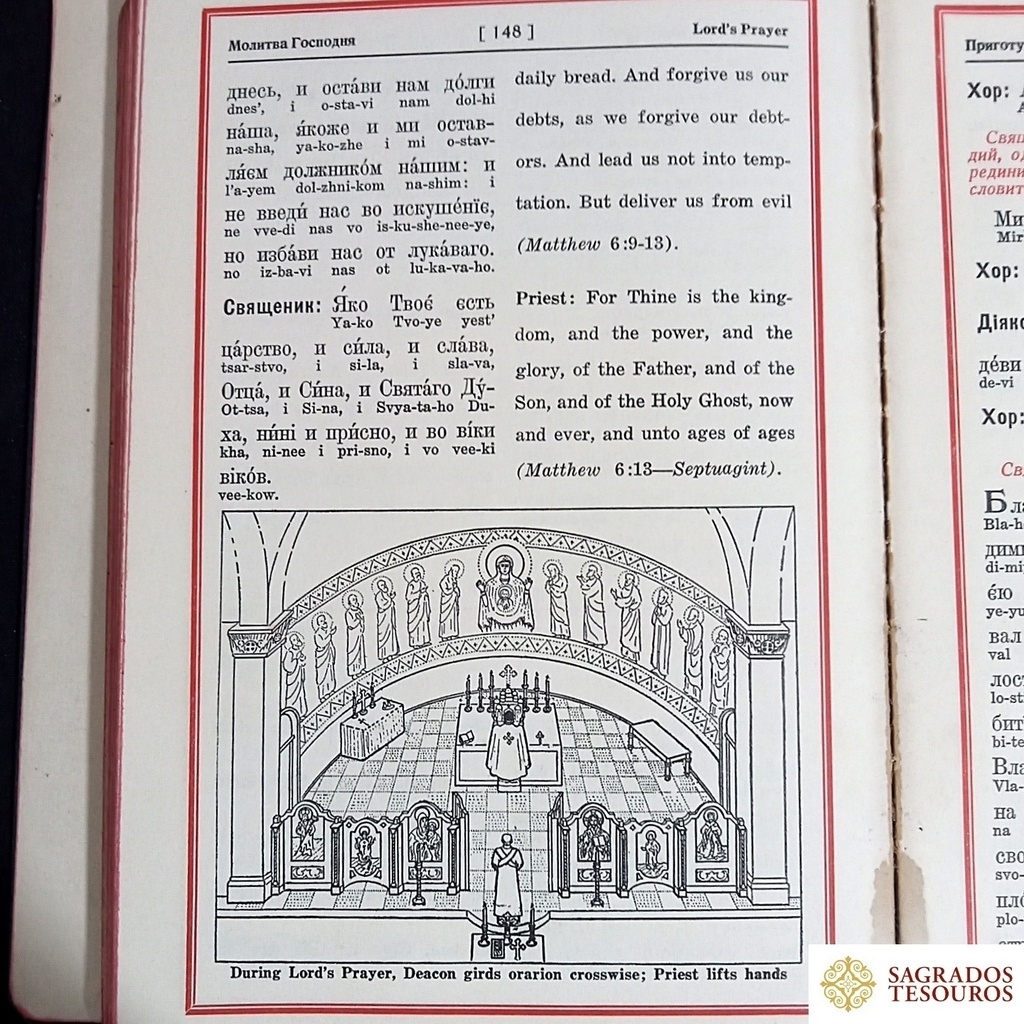 Молитва Господня
[ 148 ]
Lord's Prayer
днесь, и оста́ви нам до́лги
dnes', i o-sta-vi nam dol-hi
на́ша, я́коже и ми остав-
na-sha, ya-ko-zhe i mi o-stav-
ля́єм должнико́м на́шим: и
l'a-yem dol-zhni-kom na-shim: i
не введи́ нас во искуше́ніє,
ne vve-di nas vo is-ku-she-nee-ye,
но изба́ви нас от лука́ваго.
no iz-ba-vi nas ot lu-ka-va-ho.
Священик: Я́ко Твоє́ єсть
Ya-ko Tvo-ye yest'
ца́рство, и си́ла, и сла́ва,
tsar-stvo, i si-la, i sla-va,
Отца́, и Си́на, и Свята́го Ду́-
Ot-tsa, i Si-na, i Svya-ta-ho Du-
ха, ни́ні и при́сно, и во ві́ки
kha, ni-nee i pri-sno, i vo vee-ki
віко́в.
vee-kow.
daily bread. And forgive us our
debts, as we forgive our debt-
ors. And lead us not into temp-
tation. But deliver us from evil
(Matthew 6:9-13).
Priest: For Thine is the king-
dom, and the power, and the
glory, of the Father, and of the
Son, and of the Holy Ghost, now
and ever, and unto ages of ages
(Matthew 6:13—Septuagint).
During Lord's Prayer, Deacon girds orarion crosswise; Priest lifts hands
Хор:
дий,
словит
Ми
Mir
Хор:
Діяко
де́ви
de-vi
Хор:
Св
Бла
Bla-h
дим
di-mi
є́ю
ye-yu
вал
val
лост
lo-st
бит
bi-te
Вла
Vla-
на
na
сво
svo-
пло
plo-
SAGRADOS
TESOUROS